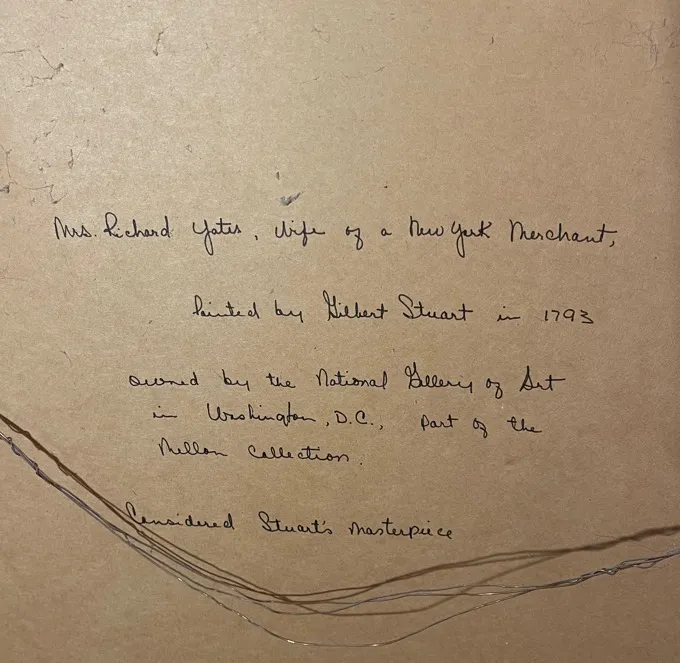 Mrs. Richard Yates, Wife of a New York Merchant,
Painted by Gilbert Stuart in 1793
owned by the National Gallery of Art
in Washington, D.C., Part of the
Mellon Collection.
Considered Stuart's Masterpiece